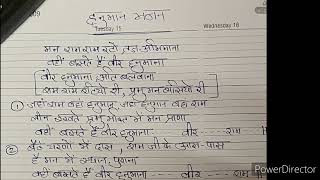 हनुमान भजन
09
Tuesday 15
Wednesday 16
मन राम राम रटो तज अभिमाना
वहीं बसते हैं वीर हनुमाना
वीर हनुमाना अति बलवाना
राम राम रटियो री, प्रभु मन बसियो री
① जहाँ राम वहाँ हनुमान, जहाँ हनुमान वहाँ राम
लीन रहते प्रभु भक्त में मन प्राणा
वहीं बसते हैं वीर हनुमाना ---- वीर --- राम
② बैठे चरणों में दास, राम जी के आस-पास
है मन में ध्यान,
वहीं बसते हैं वीर हनुमाना ---- वीर ---- राम
PowerDirector